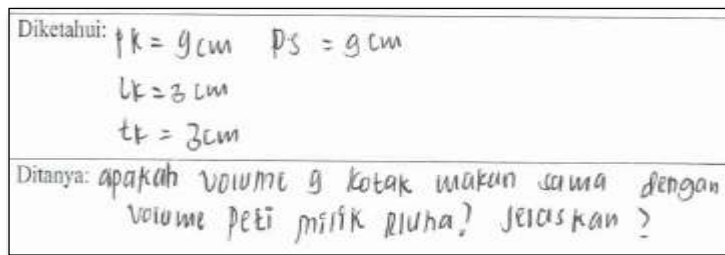 Diketahui: pk = 9 cm ps = 9 cm
lk = 3 cm
tk = 3 cm
Ditanya: apakah volume 9 kotak makan sama dengan
volume peti milik Pluha? Jelaskan?